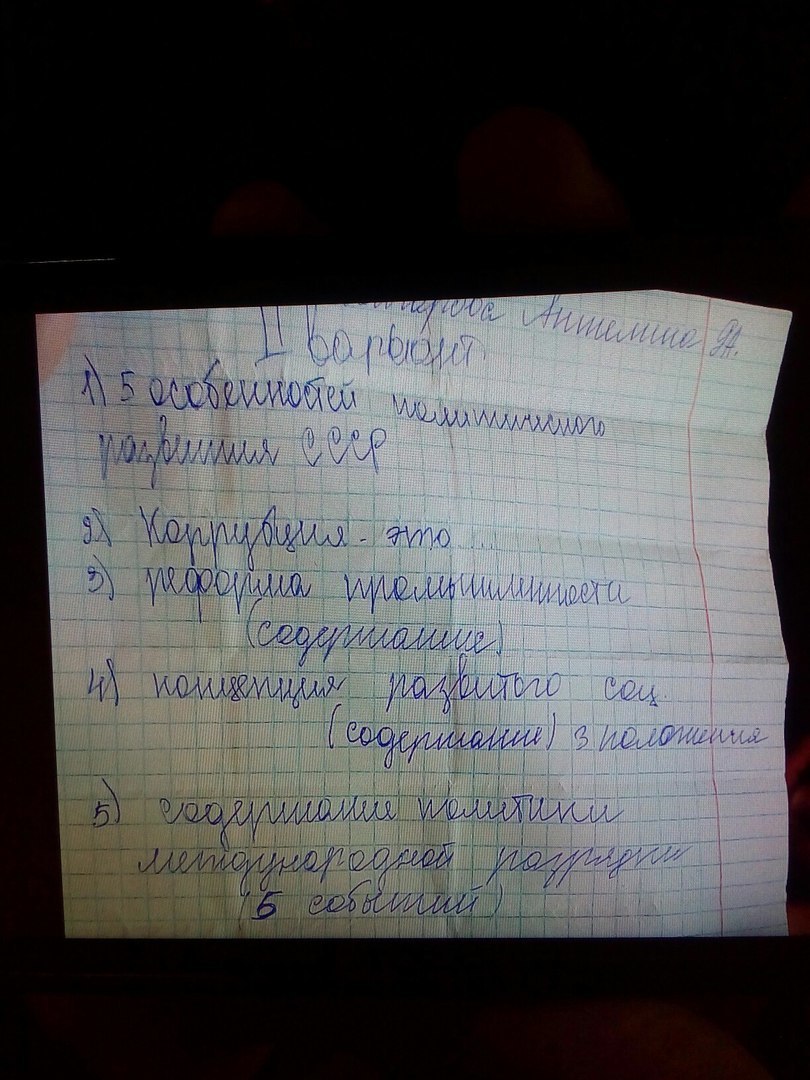 Ангелина 9А.
II вариант
1) 5 особенностей политического
развития СССР
2) Коррупция - это ...
3) реформа промышленности
(содержание)
4) концепция развитого соц.
(содержание) 3 положения
5) содержание политики
международной разрядки
(5 событий)